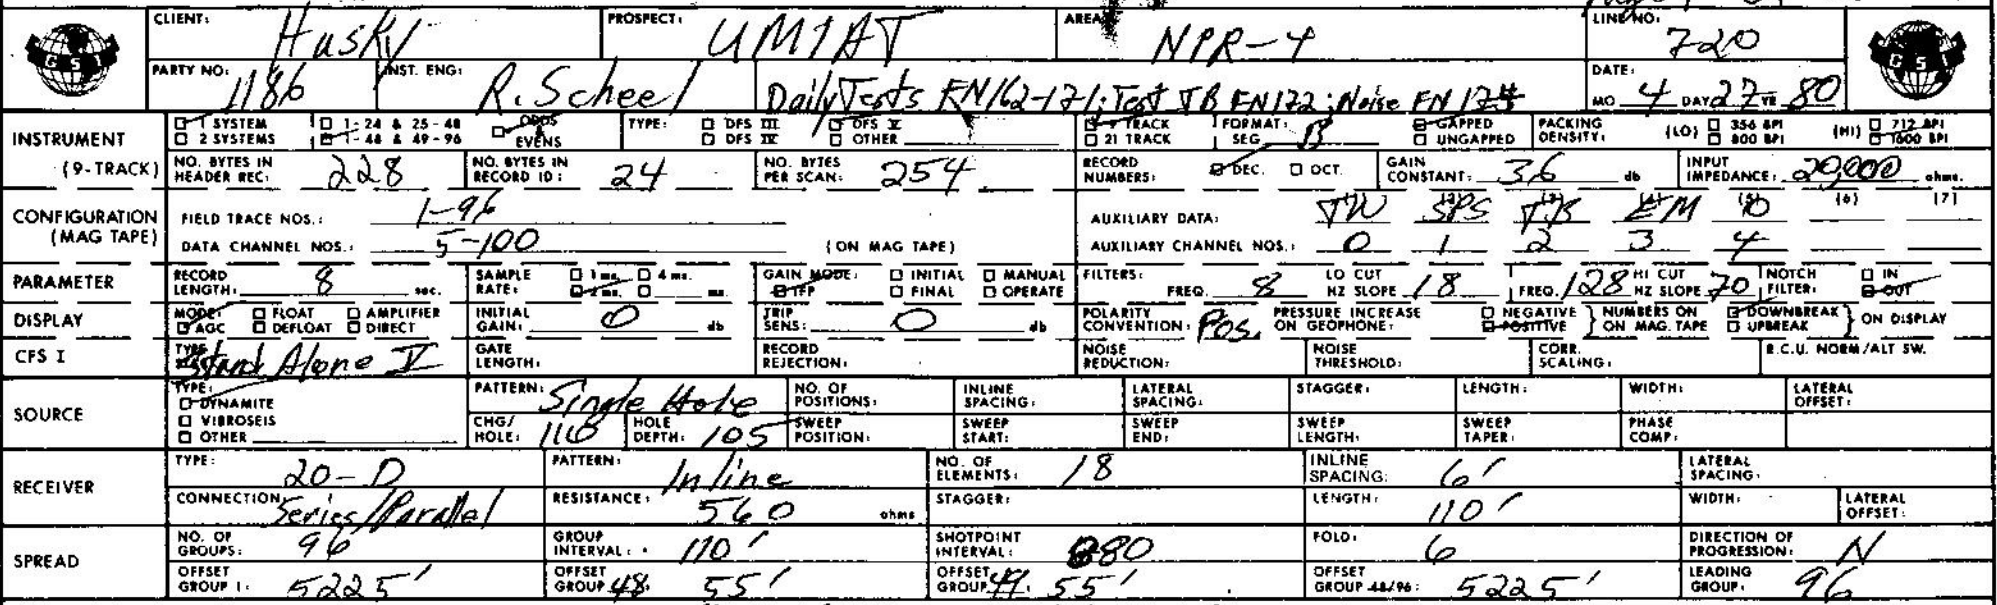 CLIENT: Husky PROSPECT: UMIAT AREA: NPR-4 LINE NO: 720
GSI GSI
PARTY NO: 1186 INST. ENG: R. Scheel Daily Tests FN 162-171; Test TB FN 172; Noise FN 174 DATE: MO 4 DAY 27 YR 80
INSTRUMENT □ 1 SYSTEM □ 1-24 & 25-48 □ ODDS & EVENS TYPE: □ DFS III □ DFS V □ 9 TRACK FORMAT: SEG B □ GAPPED PACKING DENSITY: (LO) □ 356 BPI (HI) □ 712 BPI
□ 2 SYSTEMS □ 1-48 & 49-96 □ DFS IV □ OTHER □ 21 TRACK □ UNGAPPED □ 800 BPI □ 1600 BPI
(9-TRACK) NO. BYTES IN HEADER REC: 228 NO. BYTES IN RECORD ID: 24 NO. BYTES PER SCAN: 254 RECORD NUMBERS: □ DEC. □ OCT. GAIN CONSTANT: 36 db INPUT IMPEDANCE: 20,000 ohms.
CONFIGURATION (MAG TAPE) FIELD TRACE NOS.: 1-96 AUXILIARY DATA: TW SPS TB EM 10 (6) (7)
DATA CHANNEL NOS.: 5-100 (ON MAG TAPE) AUXILIARY CHANNEL NOS.: 0 1 2 3 4
PARAMETER RECORD LENGTH: 8 sec. SAMPLE RATE: □ 1 ms. □ 4 ms. □ 2 ms. □ ms. GAIN MODE: □ INITIAL □ MANUAL □ IFP □ FINAL □ OPERATE FILTERS: FREQ. 8 LO CUT HZ SLOPE 18 FREQ. 128 HI CUT HZ SLOPE 70 NOTCH FILTER: □ IN □ OUT
DISPLAY MODE: □ FLOAT □ AMPLIFIER □ AGC □ DEFLOAT □ DIRECT INITIAL GAIN: 0 db TRIP SENS: 0 db POLARITY CONVENTION: Pos. PRESSURE INCREASE ON GEOPHONE: □ NEGATIVE □ POSITIVE } NUMBERS ON ON MAG. TAPE □ DOWNBREAK □ UPBREAK } ON DISPLAY
CFS I TYPE: Stand Alone V GATE LENGTH: RECORD REJECTION: NOISE REDUCTION: NOISE THRESHOLD: CORR. SCALING: R.C.U. NORM/ALT SW.
SOURCE TYPE: □ DYNAMITE □ VIBROSEIS □ OTHER PATTERN: Single Hole NO. OF POSITIONS: INLINE SPACING: LATERAL SPACING: STAGGER: LENGTH: WIDTH: LATERAL OFFSET:
CHG/HOLE: 110 HOLE DEPTH: 105 SWEEP POSITION: SWEEP START: SWEEP END: SWEEP LENGTH: SWEEP TAPER: PHASE COMP:
RECEIVER TYPE: 20-D PATTERN: Inline NO. OF ELEMENTS: 18 INLINE SPACING: 6' LATERAL SPACING:
CONNECTION: Series/Parallel RESISTANCE: 560 ohms STAGGER: LENGTH: 110' WIDTH: LATERAL OFFSET:
SPREAD NO. OF GROUPS: 96 GROUP INTERVAL: 110' SHOTPOINT INTERVAL: 880 FOLD: 6 DIRECTION OF PROGRESSION: N
OFFSET GROUP 1: 5225' OFFSET GROUP 48: 55' OFFSET GROUP 49: 55' OFFSET GROUP 48/96: 5225' LEADING GROUP: 96